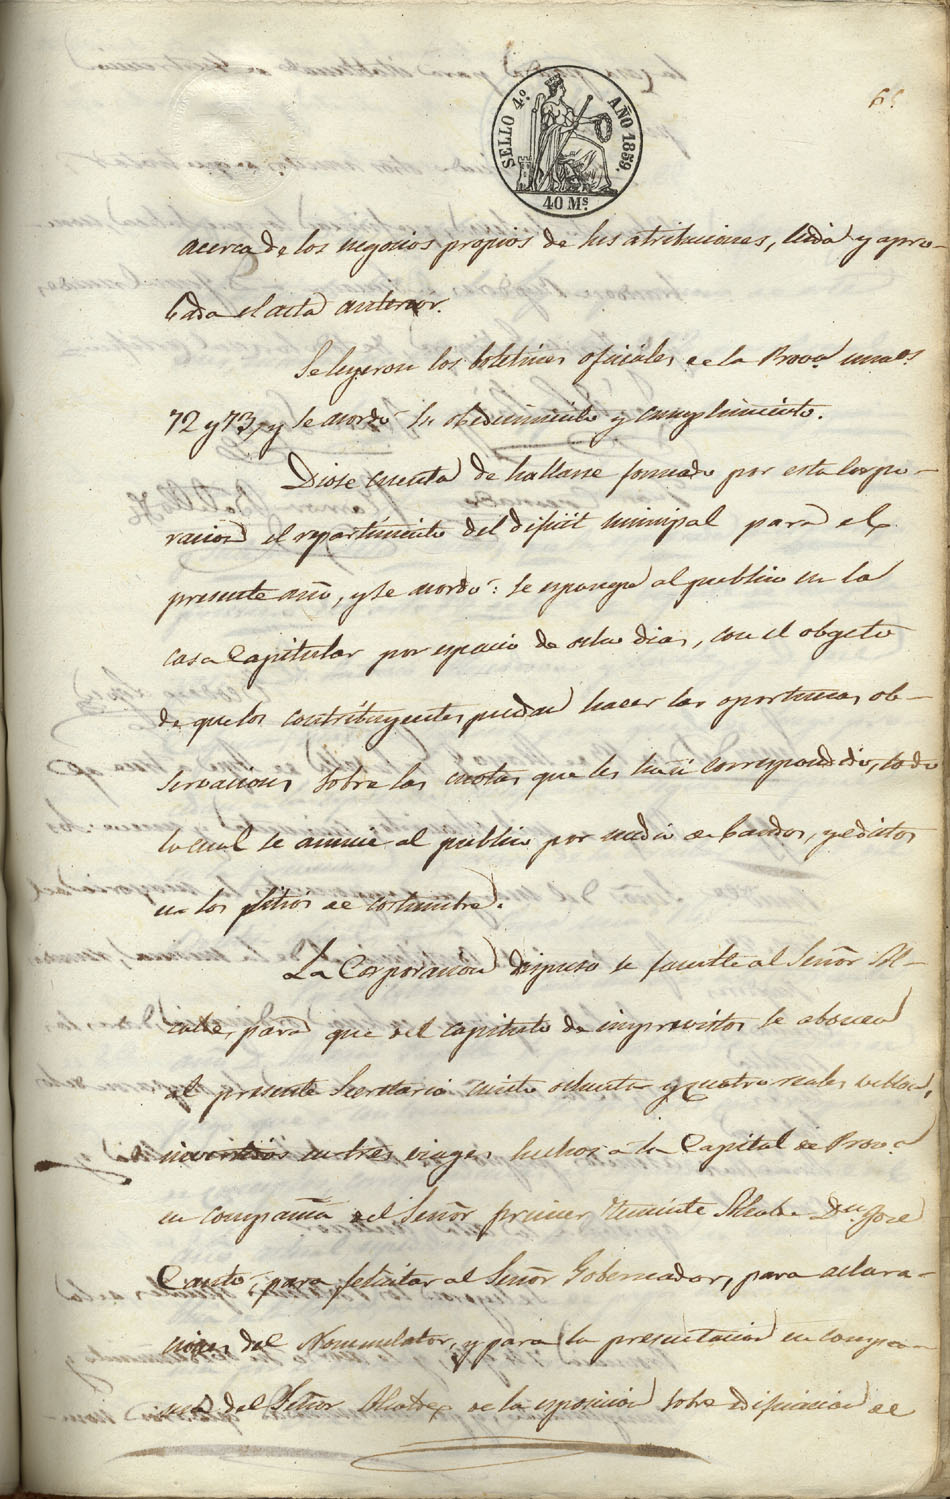 SELLO 4.º AÑO 1859.
40 Ms.
acerca de los negocios propios de sus atribuciones, leida y apro-
bada el acta anterior.
Se leyeron los boletines oficiales de la Prov.ª num.os
72 y 73, y se acordó su obedecimiento y cumplimiento.
Diose cuenta de hallarse formado por esta Corpo-
racion el repartimiento del deficit municipal para el
presente año, y se acordó: se esponga al publico en la
casa Capitular por espacio de ocho dias, con el obgeto
de que los contribuyentes puedan hacer las oportunas ob-
servaciones sobre las cuotas que les han correspondido, todo
lo cual se anuncie al publico por medio de bandos, y edictos
en los sitios de costumbre.
La Corporacion dispuso se faculte al Señor Al-
calde, para que del capitulo de imprevistos se abonen
al presente Secretario ciento ochenta y cuatro reales vellon,
invertidos en tres viages hechos a la Capital de Prov.ª
en compañia del Señor primer Teniente Alcalde Dn. José
Cantó, para felicitar al Señor Gobernador, para aclara-
ciones del Nomenclator, y para la presentacion en compa-
ñia del Señor Alcalde de la esposicion sobre edificacion de